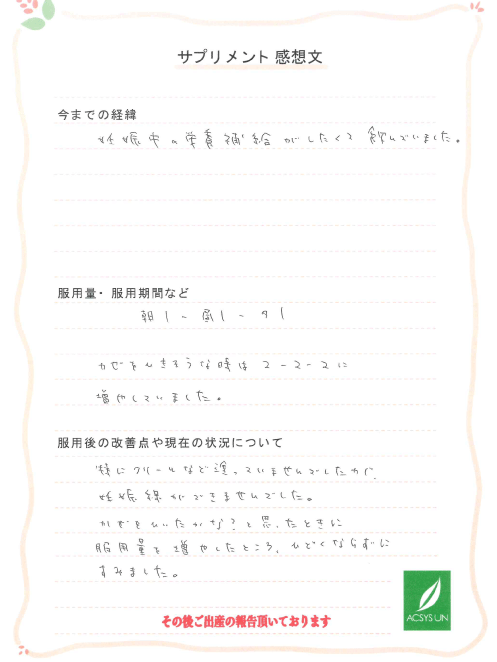 サプリメント 感想文
今までの経緯
妊娠中の栄養補給がしたくて飲んでいました。
服用量・服用期間など
朝1-昼1-夕1
カゼをひきそうな時は2-2-2に
増やしていました。
服用後の改善点や現在の状況について
特にクリームなど塗っていませんでしたが、
妊娠線ができませんでした。
かぜをひいたかな?と思ったときに
服用量を増やしたところ、ひどくならずに
すみました。
ACSYS UN
その後ご出産の報告頂いております